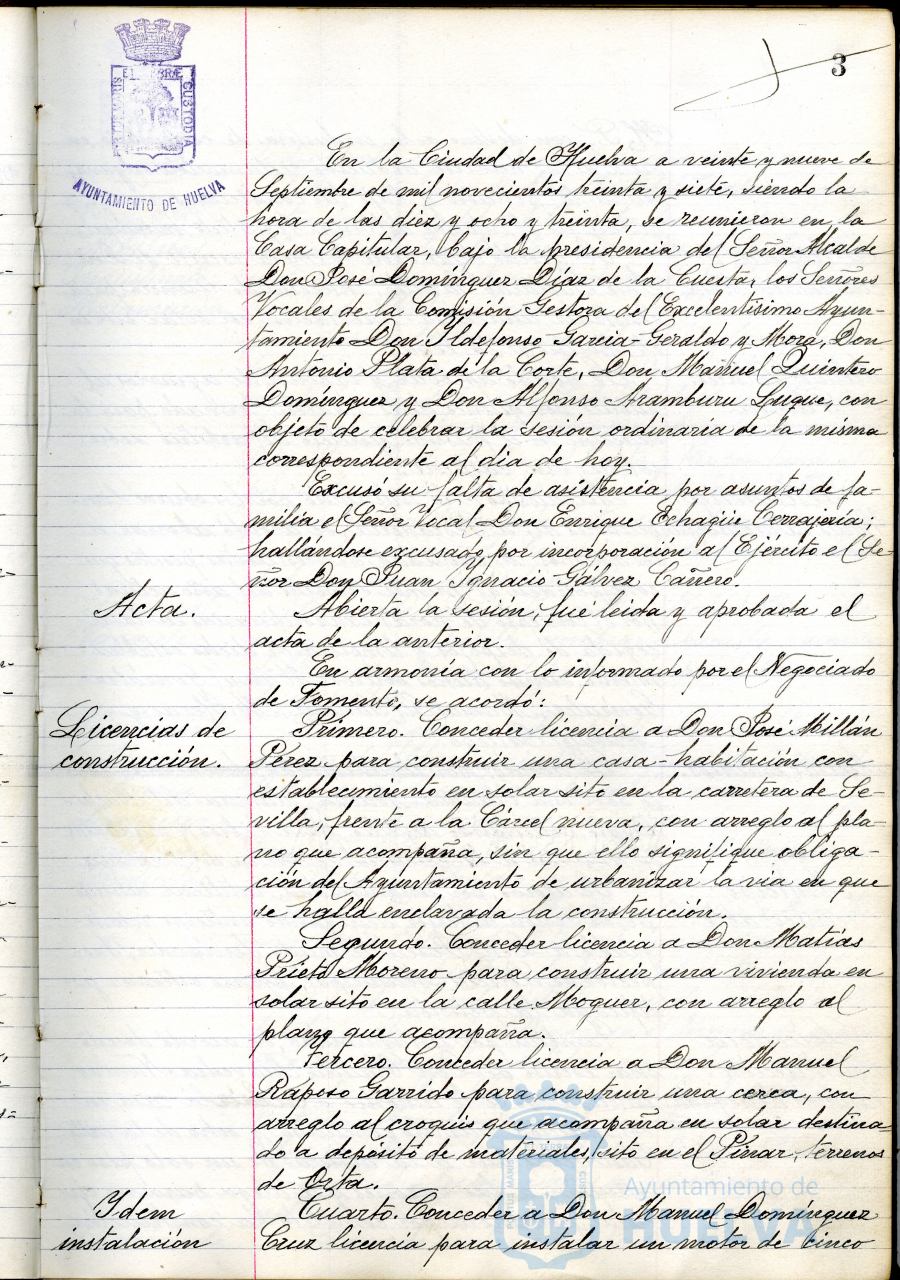 3
EL LIBRE
CUSTODIA
AYUNTAMIENTO DE HUELVA
En la Ciudad de Huelva a veinte y nueve de
Septiembre de mil novecientos treinta y siete, siendo la
hora de las diez y ocho y treinta, se reunieron en la
Casa Capitular, bajo la presidencia del Señor Alcalde
Don José Domínguez Díaz de la Cuesta, los Señores
Vocales de la Comisión Gestora del Excelentísimo Ayun-
tamiento Don Ildefonso Garcia-Geraldo y Mora, Don
Antonio Plata de la Corte, Don Manuel Quintero
Domínguez y Don Alfonso Aramburu Luque, con
objeto de celebrar la sesión ordinaria de la misma
correspondiente al dia de hoy.
Excusó su falta de asistencia por asuntos de fa-
milia el Señor Vocal Don Enrique Echagüe Cerrajería;
hallándose excusado por incorporación al Ejército el Se-
ñor Don Juan Ignacio Gálvez Cañero.
Acta.
Abierta la sesión, fué leida y aprobada el
acta de la anterior.
En armonía con lo informado por el Negociado
de Fomento, se acordó:
Licencias de
construcción.
Primero. Conceder licencia a Don José Millán
Pérez para construir una casa-habitación con
establecimiento en solar sito en la carretera de Se-
villa, frente a la Cárcel nueva, con arreglo al pla-
no que acompaña, sin que ello signifique obliga-
ción del Ayuntamiento de urbanizar la via en que
se halla enclavada la construcción.
Segundo. Conceder licencia a Don Matías
Prieto Moreno para construir una vivienda en
solar sito en la calle Moguer, con arreglo al
plano que acompaña.
Tercero. Conceder licencia a Don Manuel
Raposo Garrido para construir una cerca, con
arreglo al croquis que acompaña en solar destina-
do a depósito de materiales, sito en el Pinar, terrenos
de Orta.
Idem
instalación
Cuarto. Conceder a Don Manuel Domínguez
Cruz licencia para instalar un motor de cinco
Ayuntamiento de
HUELVA